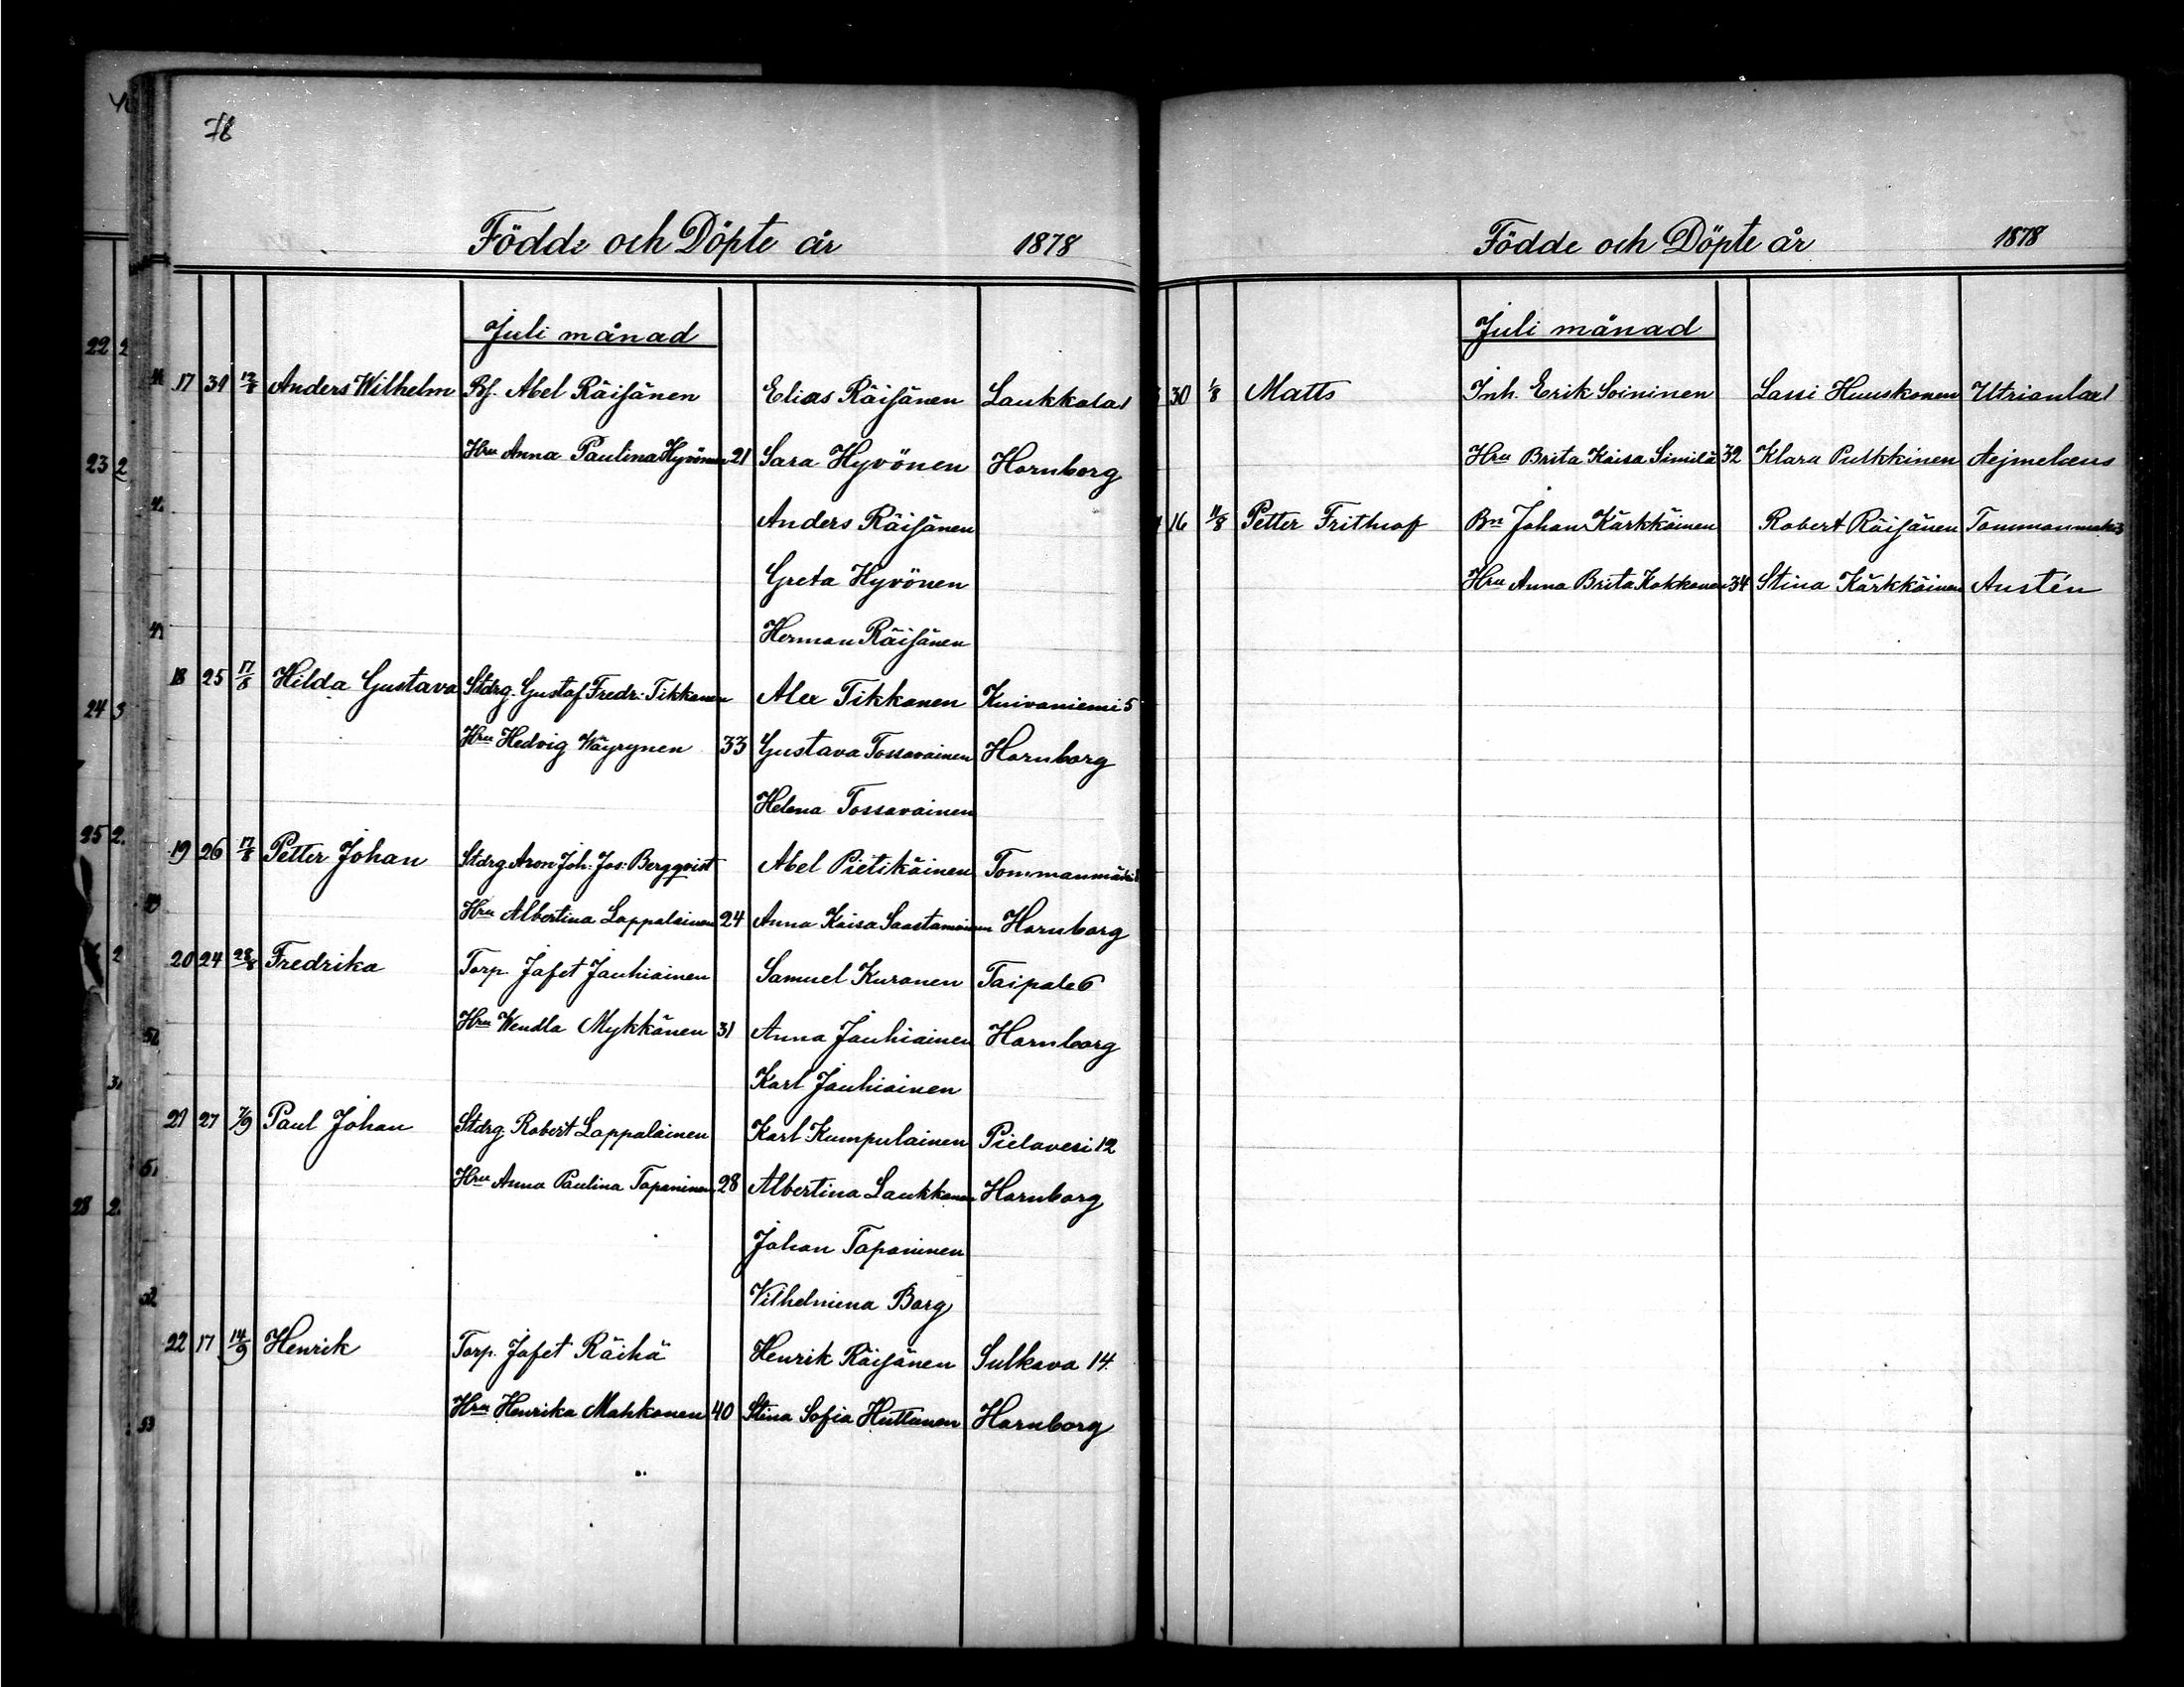 78
Födde och Döpte år 1878
Juli månad
17 31 12/8 Anders Wilhelm Bf. Abel Räisänen Elias Räisänen Laukkala 1
Hru Anna Paulina Hyvönen 21 Sara Hyvönen Hornborg
Anders Räisänen
Greta Hyvönen
Herman Räisänen
18 25 17/8 Hilda Gustava Stdrg. Gustaf Fredr: Tikkanen Alex Tikkanen Kuivaniemi 5
Hru Hedvig Wäyrynen 33 Gustava Tossavainen Hornborg
Helena Tossavainen
19 26 17/8 Petter Johan Stdrg. Aron Joh: Jos: Bergqvist Abel Pietikäinen Tommanmäki
Hru Albertina Lappalainen 24 Anna Kaisa Saastamoinen Hornborg
20 24 28/8 Fredrika Torp. Jafet Jauhiainen Samuel Kuronen Taipale 6
Hru Wendla Mykkänen 31 Anna Jauhiainen Hornborg
Karl Jauhiainen
21 27 7/9 Paul Johan Stdrg. Robert Lappalainen Karl Kumpulainen Pielavesi 12
Hru Anna Paulina Tapaninen 28 Albertina Laukkanen Hornborg
Johan Tapaninen
Vilhelmina Borg
22 17 14/9 Henrik Torp. Jafet Räihä Henrik Räisänen Sulkava 14.
Hru Henrika Mahkonen 40 Stina Sofia Huttunen Hornborg
Födde och Döpte år 1878
Juli månad
30 1/8 Matts Inh. Erik Soininen Lassi Huuskonen Utrianlax 1
Hru Brita Kaisa Similä 32 Klara Pulkkinen Aejmelaeus
16 11/8 Petter Frithiof Bn Johan Kärkkäinen Robert Räisänen Tommanmäki 3
Hru Anna Brita Kokkonen 34 Stina Kärkkäinen Austén